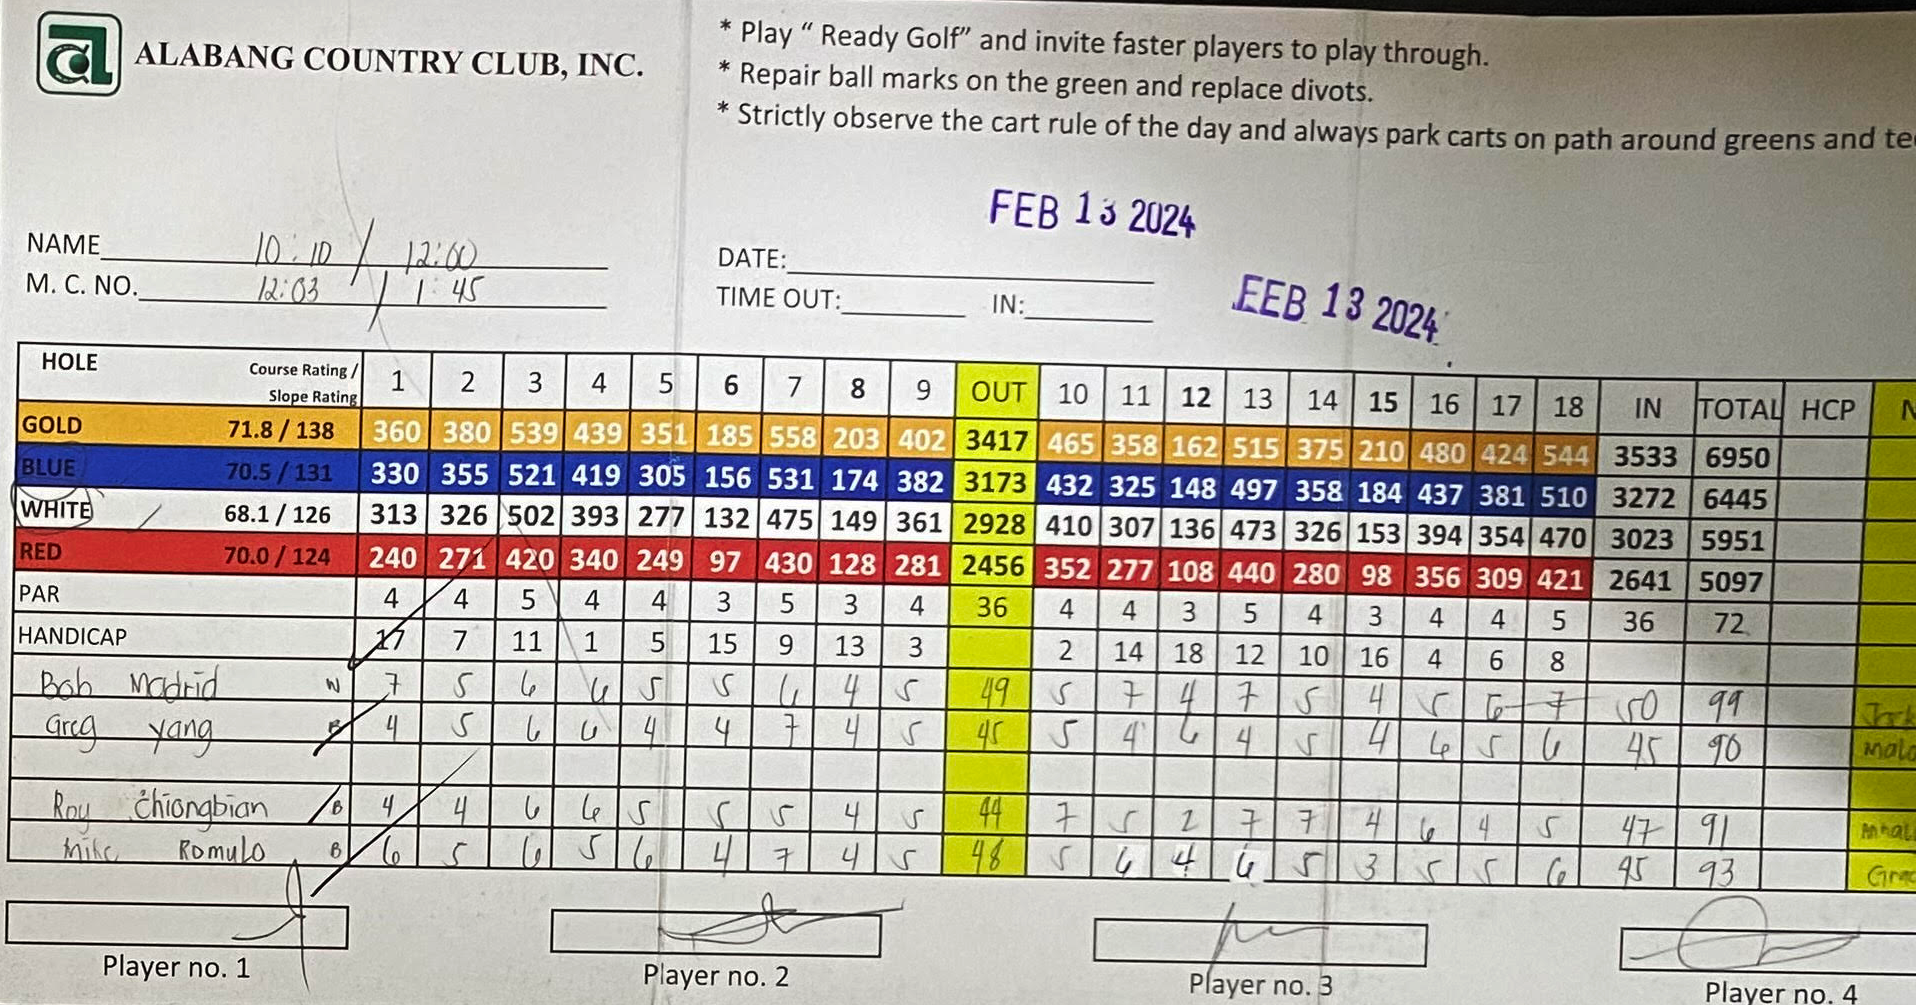 a ALABANG COUNTRY CLUB, INC.
* Play “ Ready Golf” and invite faster players to play through.
* Repair ball marks on the green and replace divots.
* Strictly observe the cart rule of the day and always park carts on path around greens and
FEB 13 2024
NAME 10:10 / 12:00
M. C. NO. 12:03 / 1:45
DATE:
TIME OUT: IN:
FEB 13 2024
HOLE Course Rating / Slope Rating 1 2 3 4 5 6 7 8 9 OUT 10 11 12 13 14 15 16 17 18 IN TOTAL HCP N
GOLD 71.8 / 138 360 380 539 439 351 185 558 203 402 3417 465 358 162 515 375 210 480 424 544 3533 6950
BLUE 70.5 / 131 330 355 521 419 305 156 531 174 382 3173 432 325 148 497 358 184 437 381 510 3272 6445
WHITE 68.1 / 126 313 326 502 393 277 132 475 149 361 2928 410 307 136 473 326 153 394 354 470 3023 5951
RED 70.0 / 124 240 271 420 340 249 97 430 128 281 2456 352 277 108 440 280 98 356 309 421 2641 5097
PAR 4 4 5 4 4 3 5 3 4 36 4 4 3 5 4 3 4 4 5 36 72
HANDICAP 17 7 11 1 5 15 9 13 3 2 14 18 12 10 16 4 6 8
Bob Madrid W 7 5 6 6 5 5 6 4 5 49 5 7 4 7 5 4 5 6 7 50 99
Greg Yang B 4 5 6 6 4 4 7 4 5 45 5 4 6 4 5 4 6 5 6 45 90
Roy Chiongbian B 4 4 6 6 5 5 5 4 5 44 7 5 2 7 7 4 6 4 5 47 91
Mike Romulo B 6 5 6 5 6 4 7 4 5 48 5 6 4 6 5 3 5 5 6 45 93
Player no. 1
Player no. 2
Player no. 3
Player no. 4